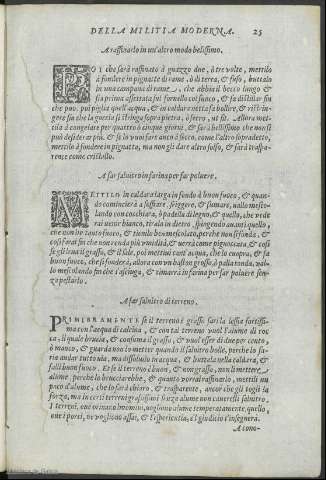 DELLA MILITIA MODERNA. 25
A raffinarlo in un'altro modo bellissimo.
POI che sarà raffinato à guazzo due, ò tre volte, mettilo
à fondere in pignatte di rame, ò di terra, & fuso, buttalo
in una campana di rame, che abbia il becco lungo &
sia prima assettata sul fornello col fuoco, & fa distillar fin
che puoi, poi piglia quell'acqua, & in caldara falla bollire, & restrin-
gere fin che la goccia si stringa sopra pietra, ò ferro, ut sup. Allora
mettila à congelare per quattro ò cinque giorni, & sarà bellissimo che non si
può desiderar più. & se lo vuoi fare anco
mettilo à fondere in pignatta, ma non gli dare altro fuoco, & sarà traspa-
rente come cristallo.
A far salnitro in farina per far polvere.
METTILO in caldara larga in fondo à buon fuoco, & quan-
do comincierà à & fumare, vallo mesco-
lando con cocchiara, ò padella di legno, & quello, che vede
rai venir bianco, tiralo in dietro, spingendo avanti quello,
che non ha tanto fuoco, & tienilo ben mescolato, perche non si fonda, &
così farai fin che non renda più umidità, & verrà come pignoccata, & così
se gli leva il grasso, & il sale, poi mettivi tant'acqua, che lo cuopra, & fa
buon fuoco, che si fonderà, allora con un baston grosso à palla tonda, vallo
mescolando fin che s'asciuga, & rimarrà in farina per far polvere sen-
za pestarlo.
A far salnitro di terreno.
PRIMIERAMENTE se il terreno è grasso farai la lessia fortissi-
ma con l'acqua di calcina, & con tal terreno vuol l'alume di roc-
ca, il quale brucia, & consuma il grasso, & vuol esser di due per cento,
ò manco, & guarda non lo metter quando il salnitro bolle, perche lo fa-
ria andar tutto via, ma dissolvilo in acqua, & buttala nella caldara, &
falli buon fuoco. Et se il terreno è buon, & non grasso, non li mettere
alume, perche lo bruciarebbe, & quanto vorrai raffinarlo, mettili un
poco d'alume, che lo farà chiaro, & trasparente, ancor che gli togli la
forza, ma in certi terreni grassissimi senza alume non cavaresti salnitro
I terreni, ove orinano huomini, vogliono alume temperatamente, quello,
ove i porci, ve vogliono assai, & l'esperientia, & il giudicio t'insegnerà.
A cono-
Biblioteca de Galicia